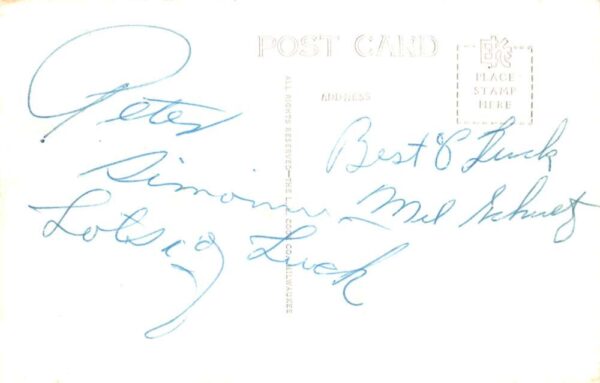 POST CARD
EKC
PLACE
STAMP
HERE
ADDRESS
ALL RIGHTS RESERVED—THE L. L. COOK CO. MILWAUKEE
Peter
Lots of Luck
Best O Luck
Mel Schultz